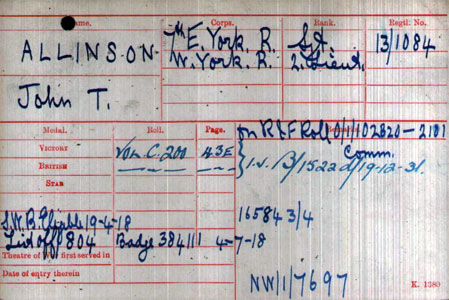 Name. Corps. Rank. Regtl. No.
ALLINSON E. York. R. Sjt. 13/1084
W. York. R. 2. Lieut.
John T.
Medal. Roll. Page.
on R&F Roll 0/1/102820-2101
VICTORY VOL. C. 200 43E
BRITISH I.V. B/1522 d/19-12-31.
Comm.
STAR
S.W.B. 19-4-18 16584 3/4
List off/804 Badge 384111 4-7-18
Theatre of first served in
Date of entry therein
NW/1/7697
K. 1380